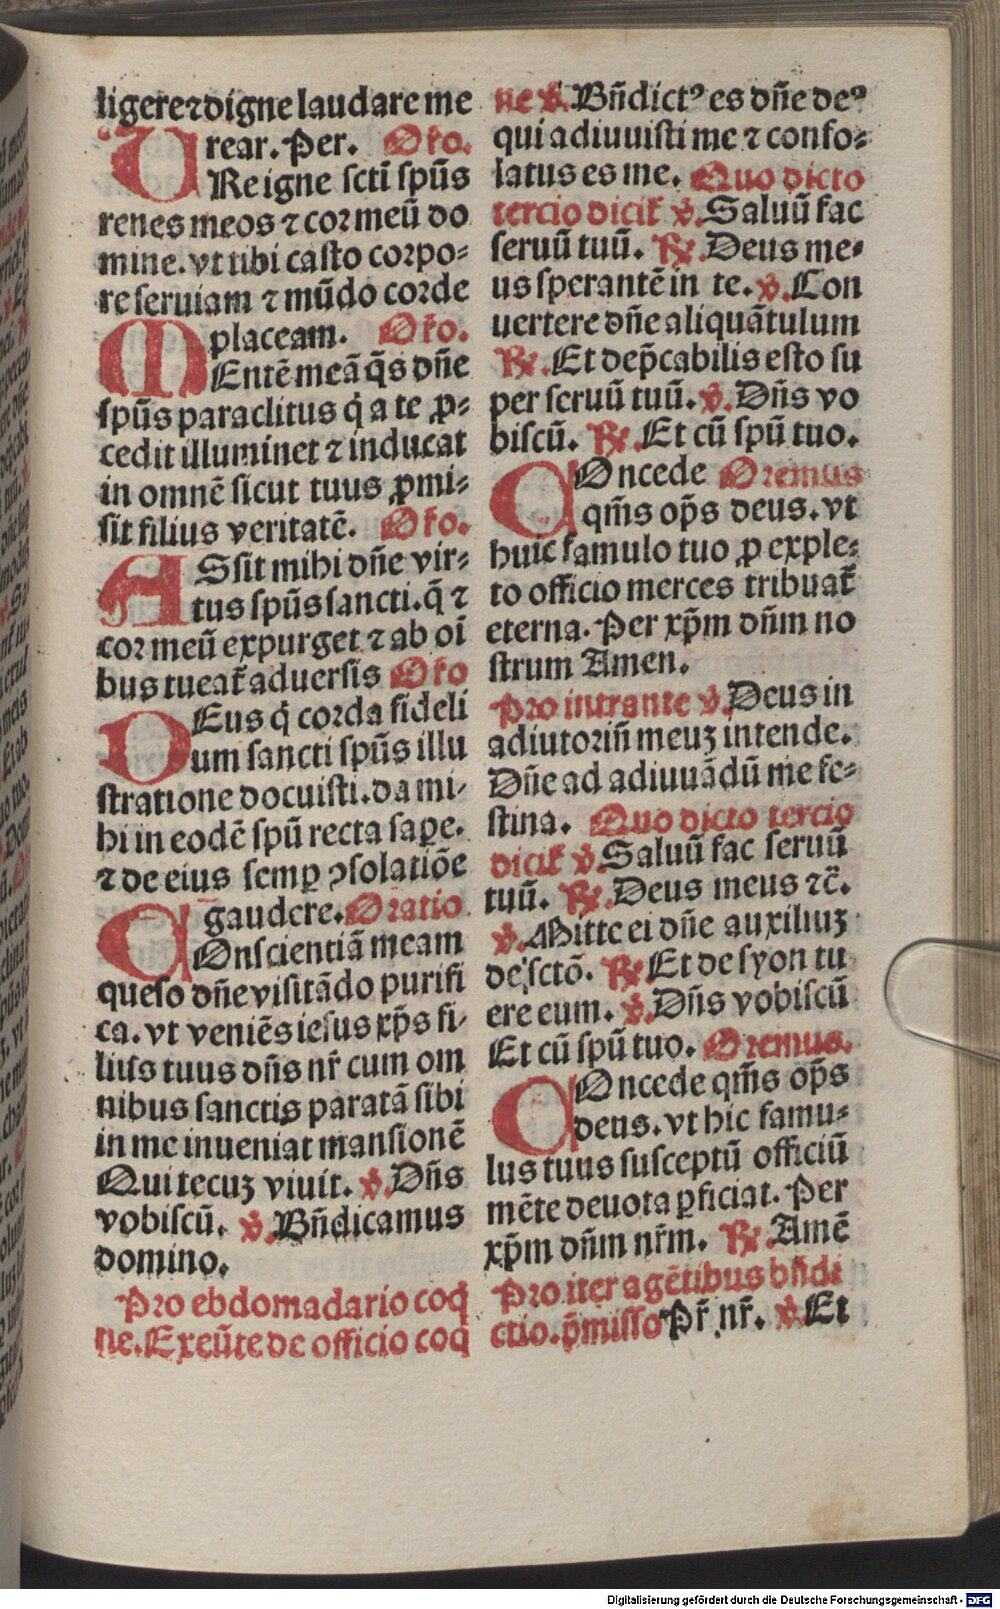 ligere ⁊ digne laudare me
rear. Per. Oro.
URe igne scti spūs
renes meos ⁊ cor meū do
mine. vt tibi casto corpo⸗
re seruiam ⁊ mūdo corde
placeam. Oro.
MEntē meā q̄s dn̄e
spūs paraclitus q̇ a te ꝓ⸗
cedit illuminet ⁊ inducat
in omnē sicut tuus ꝓmi⸗
sit filius veritatē. Oro.
ASsit mihi dn̄e vir⸗
tus spūs sancti. q̄ ⁊
cor meū expurget ⁊ ab oī
bus tueat᷑ aduersis Oro
DEus q̇ corda fideli
um sancti spūs illu
stratione docuisti. da mi⸗
hi in eodē spū recta saꝑe.
⁊ de eius semꝑ ꝯsolatiōe
gaudere. Oratio
COnscientiā meam
queso dn̄e visitādo purifi
ca. vt veniēs iesus xp̄s fi⸗
lius tuus dn̄s nr̄ cum om
nibus sanctis paratā sibi
in me inueniat mansionē
Qui tecuꝫ viuit. ℣. Dn̄s
vobiscū. ℣. Bn̄dicamus
domino.
Pro ebdomadario coq̇
ne. Exeūte de officio coq̇
ne ℣. Bn̄dictꝰ es dn̄e deꝰ
qui adiuuisti me ⁊ conso⸗
latus es me. Quo dicto
tercio dicit᷑ ℣. Saluū fac
seruū tuū. ℟. Deus me⸗
us sperantē in te. ℣. Con
uertere dn̄e aliquātulum
℟. Et dep̄cabilis esto su
per seruū tuū. ℣. Dn̄s vo
biscū. ℟. Et cū spū tuo.
COncede Oremus
qm̄s op̄s deus. vt
huic famulo tuo ꝓ exple⸗
to officio merces tribuat᷑
eterna. Per xp̄m dn̄m no
strum Amen.
Pro intrante ℣. Deus in
adiutoriū meuꝫ intende.
Dn̄e ad adiuuādū me fe⸗
stina. Quo dicto tercio
dicit᷑ ℣. Saluū fac seruū
tuū. ℟. Deus meus ⁊c̄.
℣. Mitte ei dn̄e auxiliuꝫ
de sctō. ℟. Et de syon tu
ere eum. ℣. Dn̄s vobiscū
Et cū spū tuo. Oremus.
COncede qm̄s op̄s
deus. vt hic famu⸗
lus tuus susceptū officiū
mēte deuota ꝑficiat. Per
xp̄m dn̄m nr̄m. ℟. Amē
Pro iter agētibus bn̄di
ctio. p̄misso Pr̄ nr̄. ℣. Et
Digitalisierung gefördert durch die Deutsche Forschungsgemeinschaft - DFG